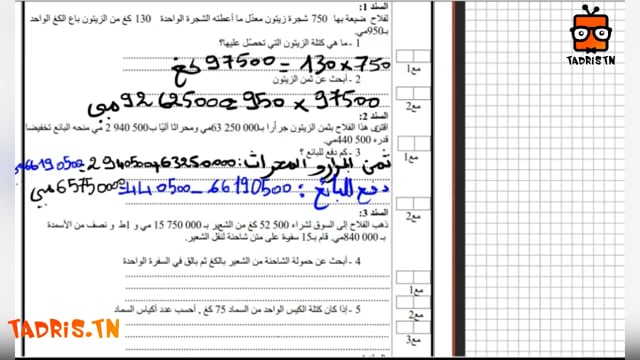 السند 1:
لفلاح ضيعة بها 750 شجرة زيتون معدل ما أعطته الشجرة الواحدة 130 كغ من الزيتون باع الكغ الواحد
بـ950مي.
1 - ما هي كتلة الزيتون التي تحصل عليها؟
750 × 130 = 97500 كغ
2 - أبحث عن ثمن الزيتون
97500 × 950 = 92625000 مي
السند 2:
اقترى هذا الفلاح بثمن الزيتون جرارا بـ000 250 63مي ومحراثا آليا بـ500 940 2 مي منحه البائع تخفيضا
قدره 500 440مي.
3 - كم دفع للبائع ؟
ثمن الجرار و المحراث: 63250000+2940500=66190500
دفع للبائع : 66190500 - 440500= 65750000 مي
السند 3:
ذهب الفلاح إلى السوق لشراء 500 52 كغ من الشعير بـ 000 750 15 مي و 1ط و نصف من الأسمدة
بـ 000 840مي. قام بـ15 سفرة على متن شاحنة لنقل الشعير.
4 - أبحث عن حمولة الشاحنة من الشعير بالكغ ثم بالق في السفرة الواحدة
5 - إذا كان كتلة الكيس الواحد من السماد 75 كغ , أحسب عدد أكياس السماد
مع1
مع2
مع1
مع2
مع1
مع2
مع3
TADRIS.TN
TADRIS.TN